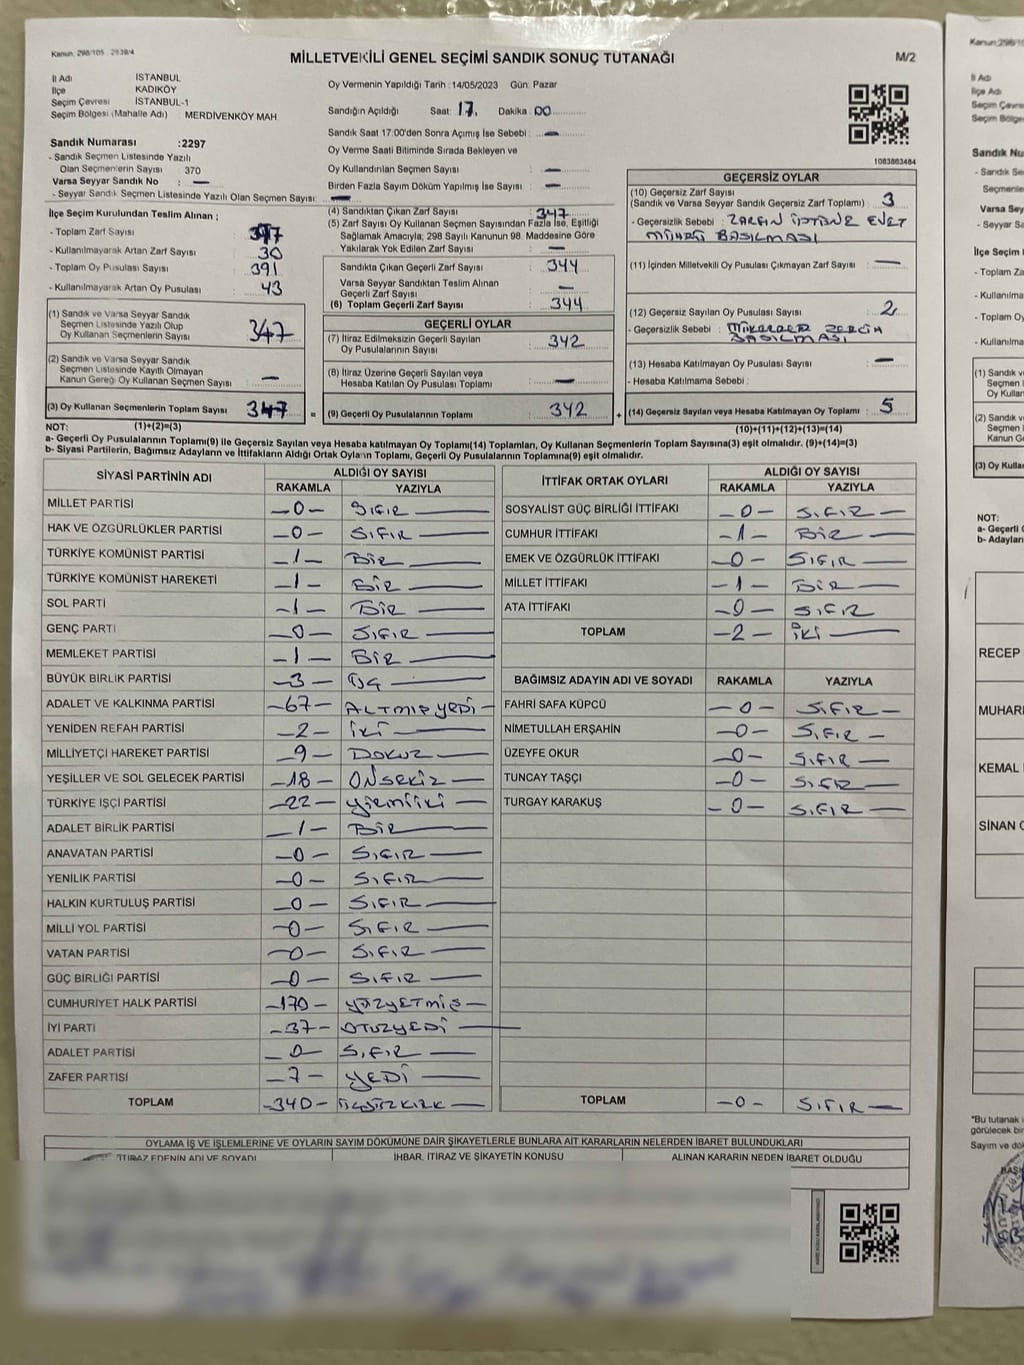 Kanun: 298/105 2839/4
MİLLETVEKİLİ GENEL SEÇİMİ SANDIK SONUÇ TUTANAĞI
M/2
İl Adı İSTANBUL
İlçe KADIKÖY
Seçim Çevresi İSTANBUL-1
Seçim Bölgesi (Mahalle Adı) : MERDİVENKÖY MAH.
Sandık Numarası :2297
- Sandık Seçmen Listesinde Yazılı
Olan Seçmenlerin Sayısı 370
Varsa Seyyar Sandık No : —
- Seyyar Sandık Seçmen Listesinde Yazılı Olan Seçmen Sayısı : —
Oy Vermenin Yapıldığı Tarih : 14/05/2023 Gün: Pazar
Sandığın Açıldığı Saat: 17. Dakika: 00
Sandık Saat 17:00'den Sonra Açımış İse Sebebi : —
Oy Verme Saati Bitiminde Sırada Bekleyen ve
Oy Kullandırılan Seçmen Sayısı : —
Birden Fazla Sayım Döküm Yapılmış İse Sayısı : —
1083863484
İlçe Seçim Kurulundan Teslim Alınan ;
- Toplam Zarf Sayısı : 377
- Kullanılmayarak Artan Zarf Sayısı : 30
- Toplam Oy Pusulası Sayısı : 391
- Kullanılmayarak Artan Oy Pusulası : 43
(1) Sandık ve Varsa Seyyar Sandık
Seçmen Listesinde Yazılı Olup
Oy Kullanan Seçmenlerin Sayısı : 347
(2) Sandık ve Varsa Seyyar Sandık
Seçmen Listesinde Kayıtlı Olmayan
Kanun Gereği Oy Kullanan Seçmen Sayısı : —
(3) Oy Kullanan Seçmenlerin Toplam Sayısı 347
(4) Sandıktan Çıkan Zarf Sayısı : 347
(5) Zarf Sayısı Oy Kullanan Seçmen Sayısından Fazla İse, Eşitliği
Sağlamak Amacıyla, 298 Sayılı Kanunun 98. Maddesine Göre
Yakılarak Yok Edilen Zarf Sayısı : —
Sandıkta Çıkan Geçerli Zarf Sayısı : 344
Varsa Seyyar Sandıktan Teslim Alınan
Geçerli Zarf Sayısı : —
(6) Toplam Geçerli Zarf Sayısı : 344
GEÇERLİ OYLAR
(7) İtiraz Edilmeksizin Geçerli Sayılan
Oy Pusulalarının Sayısı : 342
(8) İtiraz Üzerine Geçerli Sayılan veya
Hesaba Katılan Oy Pusulası Toplamı : —
= (9) Geçerli Oy Pusulalarının Toplamı : 342 +
GEÇERSİZ OYLAR
(10) Geçersiz Zarf Sayısı
(Sandık ve Varsa Seyyar Sandık Geçersiz Zarf Toplamı) : 3
- Geçersizlik Sebebi : ZARFIN ÜSTÜNE EVET
MÜHRÜ BASILMASI
(11) İçinden Milletvekili Oy Pusulası Çıkmayan Zarf Sayısı : —
(12) Geçersiz Sayılan Oy Pusulası Sayısı : 2
- Geçersizlik Sebebi :
BASILMASI
(13) Hesaba Katılmayan Oy Pusulası Sayısı : —
- Hesaba Katılmama Sebebi :
(14) Geçersiz Sayılan veya Hesaba Katılmayan Oy Toplamı : 5
NOT: (1)+(2)=(3) (10)+(11)+(12)+(13)=(14)
a- Geçerli Oy Pusulalarının Toplamı(9) ile Geçersiz Sayılan veya Hesaba katılmayan Oy Toplamı(14) Toplamları, Oy Kullanan Seçmenlerin Toplam Sayısına(3) eşit olmalıdır. (9)+(14)=(3)
b- Siyasi Partilerin, Bağımsız Adayların ve İttifakların Aldığı Ortak Oyların Toplamı, Geçerli Oy Pusulalarının Toplamına(9) eşit olmalıdır.
SİYASİ PARTİNİN ADI ALDIĞI OY SAYISI
RAKAMLA YAZIYLA
MİLLET PARTİSİ —0— SIFIR
HAK VE ÖZGÜRLÜKLER PARTİSİ —0— SIFIR
TÜRKİYE KOMÜNİST PARTİSİ —1— BİR
TÜRKİYE KOMÜNİST HAREKETİ —1— BİR
SOL PARTİ —1— BİR
GENÇ PARTİ —0— SIFIR
MEMLEKET PARTİSİ —1— BİR
BÜYÜK BİRLİK PARTİSİ —3— ÜÇ
ADALET VE KALKINMA PARTİSİ —67— ALTMIŞYEDİ
YENİDEN REFAH PARTİSİ —2— İKİ
MİLLİYETÇİ HAREKET PARTİSİ —9— DOKUZ
YEŞİLLER VE SOL GELECEK PARTİSİ —18— ONSEKİZ
TÜRKİYE İŞÇİ PARTİSİ —22— yirmiiki
ADALET BİRLİK PARTİSİ —1— BİR
ANAVATAN PARTİSİ —0— SIFIR
YENİLİK PARTİSİ —0— SIFIR
HALKIN KURTULUŞ PARTİSİ —0— SIFIR
MİLLİ YOL PARTİSİ —0— SIFIR
VATAN PARTİSİ —0— SIFIR
GÜÇ BİRLİĞİ PARTİSİ —0— SIFIR
CUMHURİYET HALK PARTİSİ —170— YÜZYETMİŞ
İYİ PARTİ —37— OTUZYEDİ
ADALET PARTİSİ —0— SIFIR
ZAFER PARTİSİ —7— YEDİ
TOPLAM —340— ÜÇYÜZKIRK
İTTİFAK ORTAK OYLARI ALDIĞI OY SAYISI
RAKAMLA YAZIYLA
SOSYALİST GÜÇ BİRLİĞİ İTTİFAKI —0— SIFIR
CUMHUR İTTİFAKI —1— BİR
EMEK VE ÖZGÜRLÜK İTTİFAKI —0— SIFIR
MİLLET İTTİFAKI —1— BİR
ATA İTTİFAKI —0— SIFIR
TOPLAM —2— İKİ
BAĞIMSIZ ADAYIN ADI VE SOYADI RAKAMLA YAZIYLA
FAHRİ SAFA KÜPCÜ —0— SIFIR
NİMETULLAH ERŞAHİN —0— SIFIR
ÜZEYFE OKUR —0— SIFIR
TUNCAY TAŞÇI —0— SIFIR
TURGAY KARAKUŞ —0— SIFIR
TOPLAM —0— SIFIR
OYLAMA İŞ VE İŞLEMLERİNE VE OYLARIN SAYIM DÖKÜMÜNE DAİR ŞİKAYETLERLE BUNLARA AİT KARARLARIN NELERDEN İBARET BULUNDUKLARI
İTİRAZ EDENİN ADI VE SOYADI İHBAR, İTİRAZ VE ŞİKAYETİN KONUSU ALINAN KARARIN NEDEN İBARET OLDUĞU
Kanun:298/10
İl Adı
İlçe
Seçim Çevre
Seçim Bölge
Sandık Nu
- Sandık Se
Seçmenle
Varsa Seyy
- Seyyar Sa
İlçe Seçim
- Toplam Za
- Kullanılma
- Toplam Oy
- Kullanılma
(1) Sandık v
Seçmen
Oy Kulla
(2) Sandık v
Seçmen L
Kanun G
(3) Oy Kulla
NOT:
a- Geçerli O
b- Adayların
RECEP
MUHAR
KEMAL
SİNAN O
*Bu tutanak
görülecek bir
Sayım ve dö